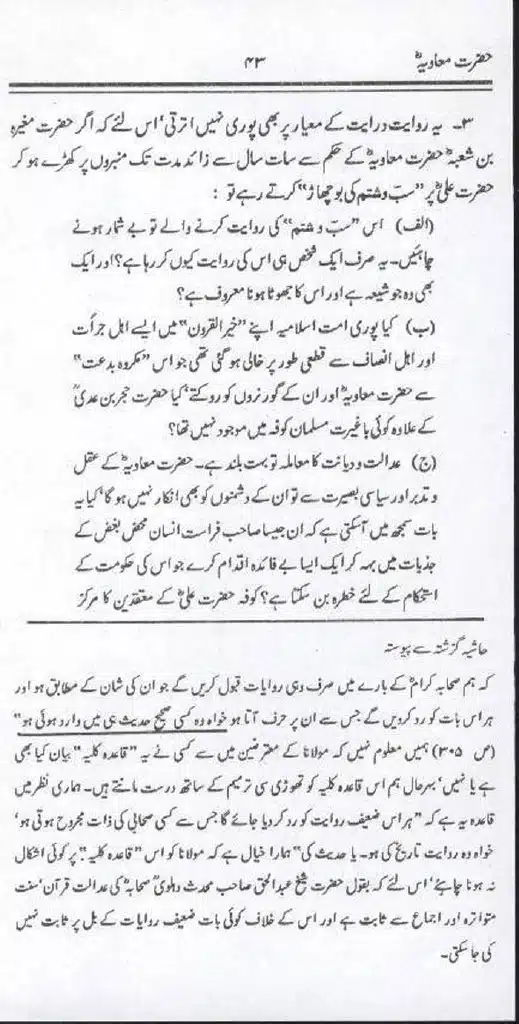 حضرت معاویہؓ ۴۳
۳۔ یہ روایت درایت کے معیار پر بھی پوری نہیں اترتی' اس لئے کہ اگر حضرت مغیرہ
بن شعبہؓ حضرت معاویہؓ کے حکم سے سات سال سے زائد مدت تک منبروں پر کھڑے ہو کر
حضرت علیؓ پر "سبّ و شتم کی بوچھاڑ" کرتے رہے تو :
(الف) اس "سبّ و شتم" کی روایت کرنے والے تو بے شمار ہونے
چاہئیں۔ یہ صرف ایک شخص ہی اس کی روایت کیوں کر رہا ہے؟ اور ایک
بھی وہ جو شیعہ ہے اور اس کا جھوٹا ہونا معروف ہے؟
(ب) کیا پوری امت اسلامیہ اپنے "خیر القرون" میں ایسے اہل جرأت
اور اہل انصاف سے قطعی طور پر خالی ہو گئی تھی جو اس "مکروہ بدعت"
سے حضرت معاویہؓ اور ان کے گورنروں کو روکتے' کیا حضرت حجر بن عدیؓ
کے علاوہ کوئی با غیرت مسلمان کوفہ میں موجود نہیں تھا؟
(ج) عدالت و دیانت کا معاملہ تو بہت بلند ہے۔ حضرت معاویہؓ کے عقل
و تدبر اور سیاسی بصیرت سے تو ان کے دشمنوں کو بھی انکار نہیں ہو گا' کیا یہ
بات سمجھ میں آسکتی ہے کہ ان جیسا صاحب فراست انسان محض بغض کے
جذبات میں بہہ کر ایک ایسا بے فائدہ اقدام کرے جو اس کی حکومت کے
استحکام کے لئے خطرہ بن سکتا ہے؟ کوفہ حضرت علیؓ کے معتقدین کا مرکز
حاشیہ گزشتہ سے پیوستہ
کہ ہم صحابہ کرامؓ کے بارے میں صرف وہی روایات قبول کریں گے جو ان کی شان کے مطابق ہو اور
ہر اس بات کو رد کردیں گے جس سے ان پر حرف آتا ہو خواہ وہ کسی صحیح حدیث ہی میں وارد ہوئی ہو"
(ص ۳۰۵) ہمیں معلوم نہیں کہ مولانا کے معترضین میں سے کسی نے یہ "قاعدہ کلیہ" بیان کیا بھی
ہے یا نہیں' بہرحال ہم اس قاعدہ کلیہ کو تھوڑی سی ترمیم کے ساتھ درست مانتے ہیں۔ ہماری نظر میں
قاعدہ یہ ہے کہ "ہر اس ضعیف روایت کو رد کر دیا جائے گا جس سے کسی صحابی کی ذات مجروح ہوتی ہو'
خواہ وہ روایت تاریخ کی ہو۔ یا حدیث کی" ہمارا خیال ہے کہ مولانا کو اس "قاعدہ کلیہ" پر کوئی اشکال
نہ ہونا چاہئے' اس لئے کہ بقول حضرت شیخ عبدالحق صاحب محدث دہلویؒ صحابہؓ کی عدالت قرآن' سنت
متواترہ اور اجماع سے ثابت ہے اور اس کے خلاف کوئی بات ضعیف روایات کے بل پر ثابت نہیں
کی جا سکتی۔